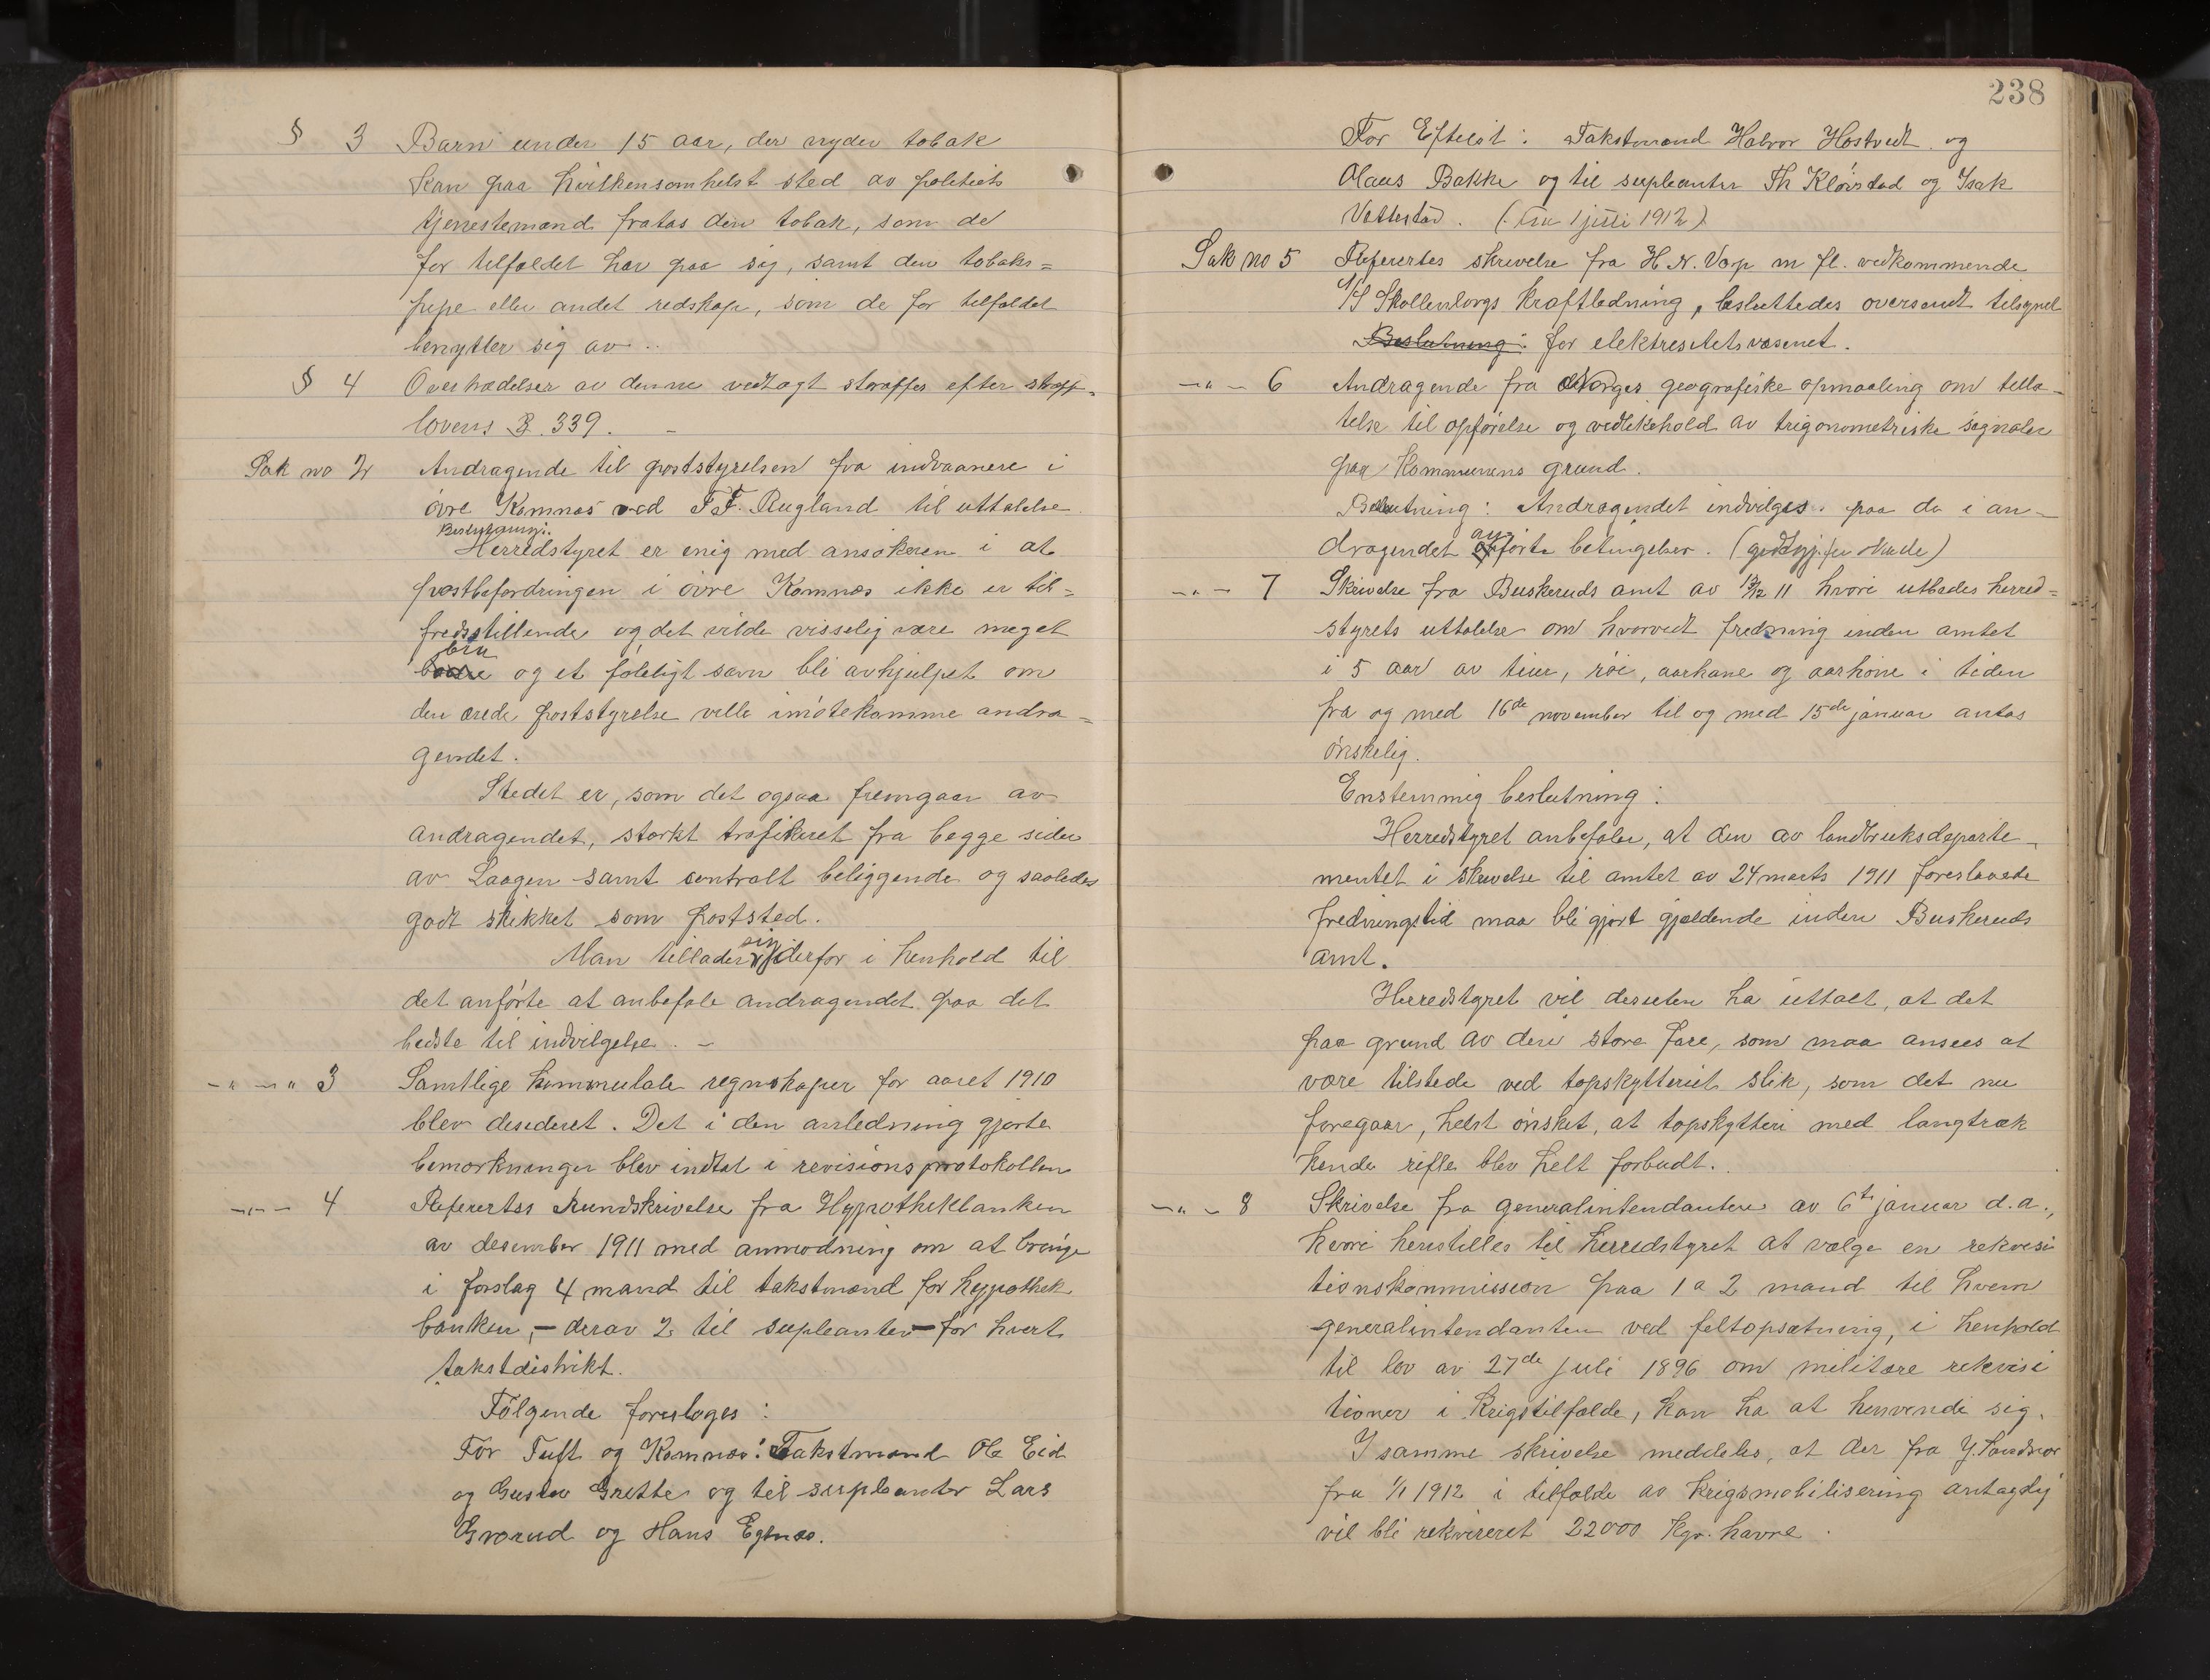 § 3 Barn under 15 aar, der nyder tobak
kan paa hvilkensomhelst sted av politiets
tjenestemænd fratas den tobak, som de
for tilfældet har paa sig, samt den tobaks=
pipe eller andet redskap, som de for tilfældet
benytter sig av..
§ 4 Overtrædelser av denne vedtægt straffes efter straff-
lovens § 339. –
Sak no 2 Andragende til poststyrelsen fra indvaanere i
øvre Komnæs ved T. F. Rugland til uttalelse.
Beslutning:
Herredstyret er enig med ansøkeren i at
postbefordringen i øvre Komnæs ikke er til=
fredsstillende og det vilde visselig være meget
bra
og et føleligt savn bli avhjulpet om
den ærede poststyrelse ville imøtekomme andra=
gendet.
Stedet er, som det ogsaa fremgaar av
andragendet, stærkt trafikeret fra begge sider
av Laagen samt centralt beliggende og saaledes
godt skikket som poststed.
Man tillader sig derfor i henhold til
det anførte at anbefale andragendet paa det
bedste til indvilgelse. –
-"- -" 3 Samtlige kommunale regnskaper for aaret 1910
blev desideret. Det i den anledning gjorte
bemerkninger blev indtat i revisionsprotokollen
-"- 4 Refererdes Rundskrivelse fra Hypothekbanken
av desember 1911 med anmodning om at bringe
i forslag 4 mand til takstmænd for hypothek
banken, – derav 2 til supleanter – for hvert
takstdistrikt.
Følgende foresloges:
For Tuft og Komnæs: Takstmænd Ole Eid
og Gustav Grette og til supleanter Lars
Gværud og Hans Egenæs.
238
For Efteløt: Takstmænd Halvor Hostvedt og
Olaus Bakke og til supleanter Th Kløvstad og Isak
Vettestad. (: fra 1 juli 1912)
Sak no 5 Refererdes skrivelse fra H. N. Varp m fl. vedkommende
A/S Skollenborgs Kraftledning, besluttedes oversendt tilsynet
Beslutning: for elektrisitetsvæsenet.
-"- 6 Andragende fra Norges geografiske opmaaling om tilla-
telse til opførelse og vedlikehold av trigonometriske signaler
paa Kommunens grund.
Beslutning: Andragendet indvilges paa de i an-
dragendet anførte betingelser.
-"- 7 Skrivelse fra Buskeruds amt av 13/12 11 hvori utbedes herred=
styrets uttalelse om hvorvidt fredning inden amtet
i 5 aar av tiur, røi, aarhane og aarhøne i tiden
fra og med 16de november til og med 15de januar antas
ønskelig.
Enstemmig beslutning:
Herredstyret anbefaler, at den av landbruksdeparte-
mentet i skrivelse til amtet av 24 marts 1911 foreslaaede
fredningstid maa bli gjort gjældende inden Buskeruds
amt.
Herredstyret vil desuten ha uttalt, at det
paa grund av den store fare, som maa ansees at
være tilstede ved topskytteriet slik, som det nu
foregaar, helst ønsket, at topskytteri med langtræk
kende rifle blev helt forbudt.
-"- 8 Skrivelse fra generalintendanten av 6te januar d.a.,
hvori henstilles til herredstyret at vælge en rekvisi
tionskommission paa 1 a 2 mand til hvem
generalintendanten ved feltopsætning, i henhold
til lov av 27de juli 1896 om militære rekvisi
tioner i krigstilfælde, kan ha at henvende sig.
I samme skrivelse meddeles, at der fra Y. Sandsvær
fra 1/1 1912 i tilfælde av krigsmobilisering antagelig
vil bli rekvireret 22000 kgr. havre.